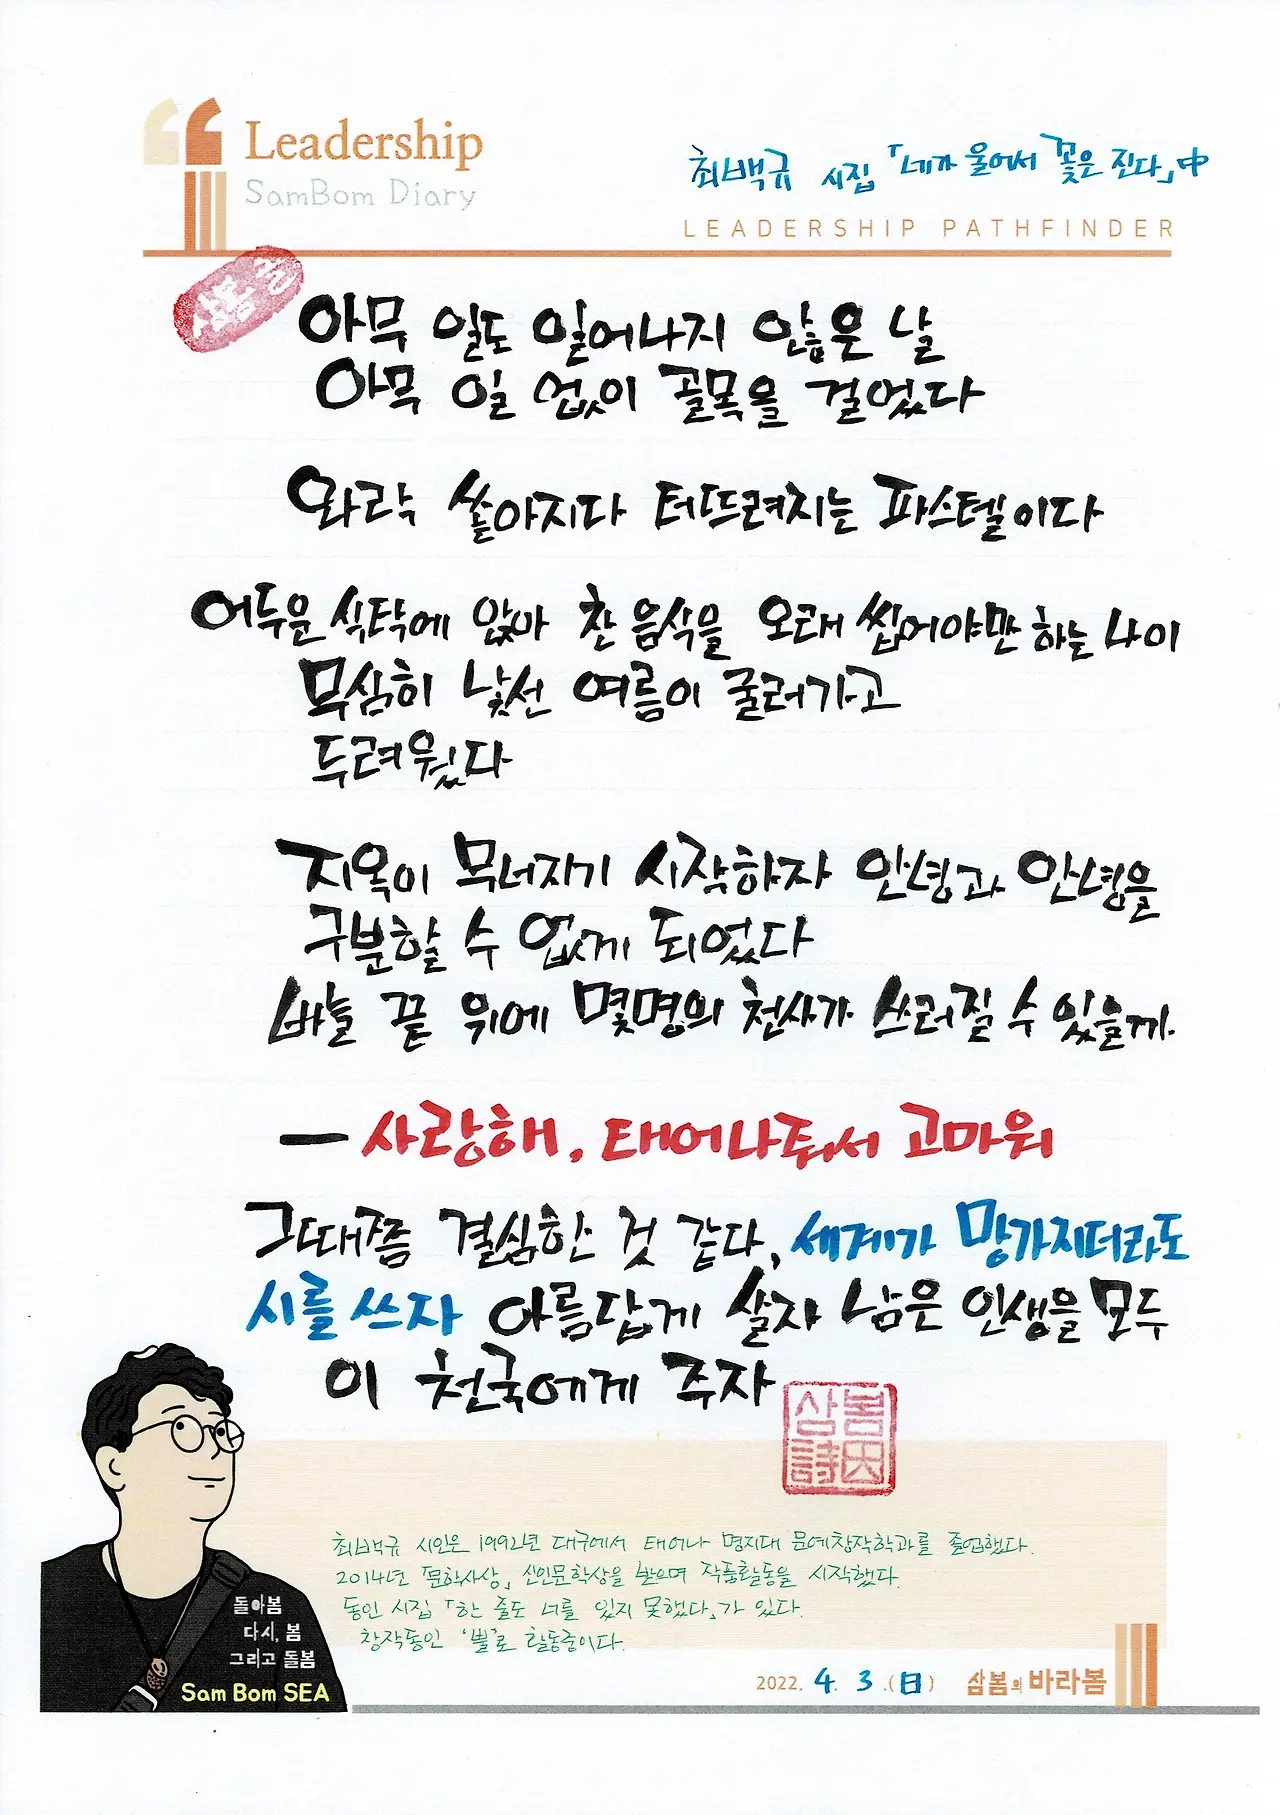 Leadership
SamBom Diary
최백규 시집 「네가 울어서 꽃은 진다」中
LEADERSHIP PATHFINDER
아무 일도 일어나지 않은 날
아무 일 없이 골목을 걸었다
와락 쏟아지다 터뜨려지는 파스텔이다
어두운 식탁에 앉아 찬 음식을 오래 씹어야만 하는 나이
무심히 낯선 여름이 굴러가고
두려웠다
지옥이 무너지기 시작하자 안녕과 안녕을
구분할 수 없게 되었다
바늘 끝 위에 몇명의 천사가 쓰러질 수 있을까.
— 사랑해. 태어나줘서 고마워
그때쯤 결심한 것 같다, 세계가 망가지더라도
시를 쓰자 아름답게 살자 남은 인생을 모두
이 천국에게 주자
삼봄
詩因
최백규 시인은 1992년 대구에서 태어나 명지대 문예창작학과를 졸업했다.
2014년 「문학사상」 신인문학상을 받으며 작품활동을 시작했다.
동인 시집 「한 줄도 너를 잊지 못했다」가 있다.
창작동인 '뿔'로 활동중이다.
돌아봄
다시, 봄
그리고 돌봄
Sam Bom SEA
2022. 4. 3 .(日)
삼봄의 바라봄